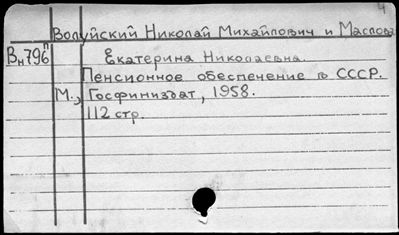 4
Волуйский Николай Михайлович и Маслова
Вн796п Екатерина Николаевна.
Пенсионное обеспечение в СССР.
М., Госфиниздат, 1958.
112 стр.